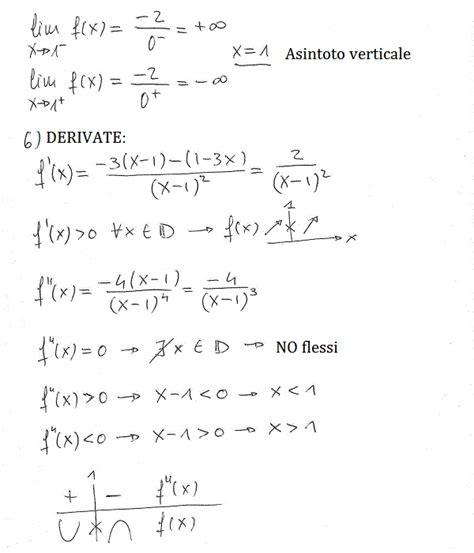 lim x→1⁻ f(x) = -2/0⁻ = +∞
x=1 Asintoto verticale
lim x→1⁺ f(x) = -2/0⁺ = -∞
6) DERIVATE:
f'(x) = (-3(x-1)-(1-3x))/(x-1)² = 2/(x-1)²
f'(x)>0 ∀x∈D → f(x) ↗ 1 ↗ x
f"(x) = -4(x-1)/(x-1)⁴ = -4/(x-1)³
f"(x)=0 → ∄x∈D → NO flessi
f"(x)>0 → x-1<0 → x<1
f"(x)<0 → x-1>0 → x>1
1
+ | - f"(x)
∪ × ∩ f(x)